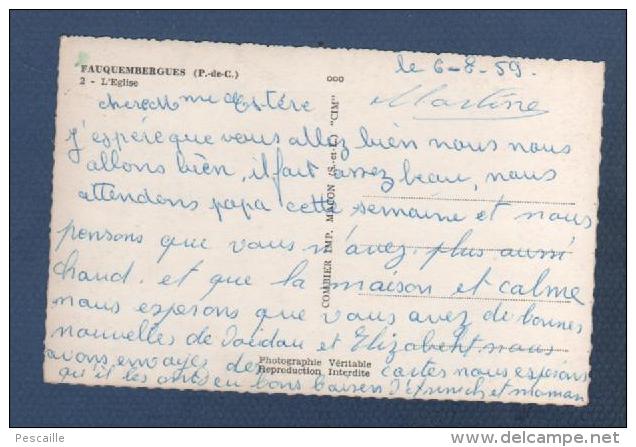 FAUQUEMBERGUES (P.-de-C.)
2 - L'Eglise
ooo
le 6-8-59.
Martine
j'espère que vous allez bien nous nous
allons bien, il fait assez beau, nous
attendons papa cette semaine et nous
pensons que vous n'avez plus aussi
chaud. et que la maison et calme
nous esperons que vous avez de bonnes
nouvelles de et Elizabeht nous
avons envoyés des cartes nous esperons
qu'il les en bons baisers et maman
COMBIER IMP. MACON (S.-et-L.) "CIM"
Photographie Véritable
Reproduction Interdite
Pescaille
www.delcampe.net